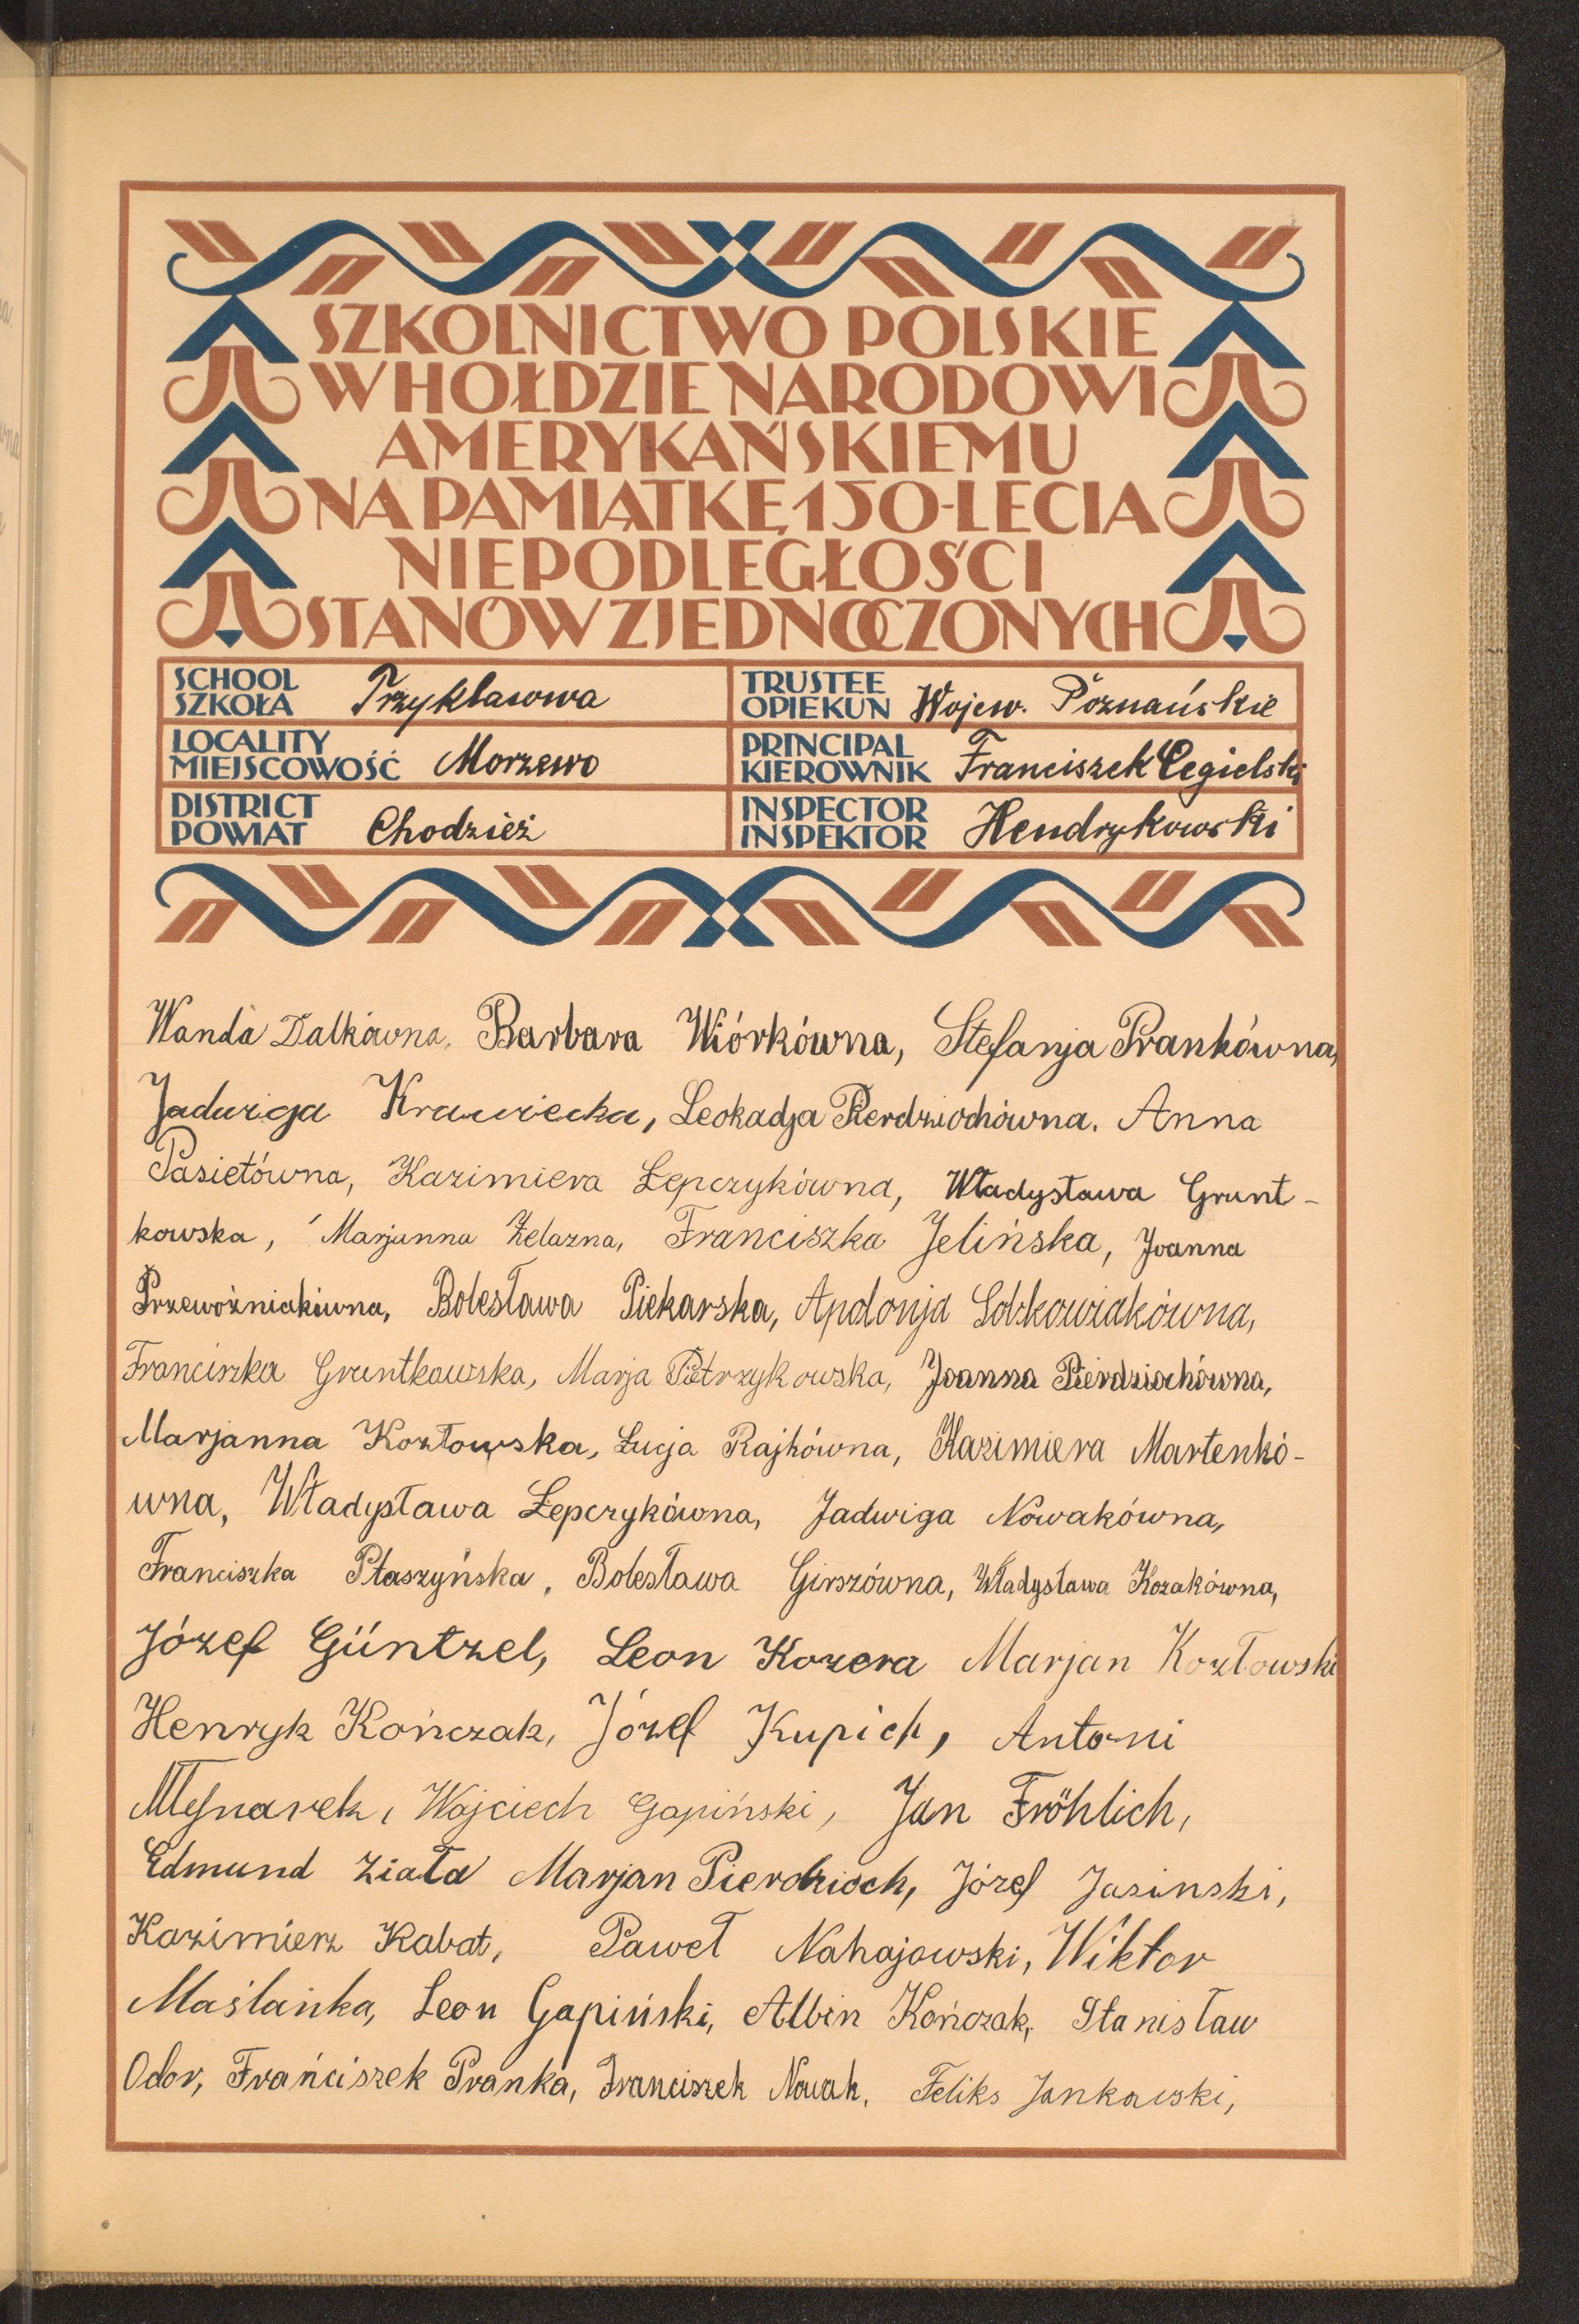 SZKOLNICTWO POLSKIE
W HOŁDZIE NARODOWI
AMERYKAŃSKIEMU
NA PAMIĄTKĘ 150-LECIA
NIEPODLEGŁOŚCI
STANÓW ZJEDNOCZONYCH
SCHOOL
SZKOŁA Trzyklasowa
TRUSTEE
OPIEKUN Wojew. Poznańskie
LOCALITY
MIEJSCOWOŚĆ Morzewo
PRINCIPAL
KIEROWNIK Franciszek Cegielski
DISTRICT
POWIAT Chodzież
INSPECTOR
INSPEKTOR Hendrykowski
Wanda Dalkówna, Barbara Wiórkówna, Stefanja Prankówna,
Jadwiga Krawiecka, Leokadja Pierdziochówna. Anna
Pasietówna, Kazimiera Łepczykówna, Władysława Grunt-
kowska, Marjanna Żelazna, Franciszka Jelińska, Joanna
Przewoźniakówna, Bolesława Piekarska, Apolonja Sobkowiakówna,
Franciszka Gruntkowska, Marja Pietrzykowska, Joanna Pierdziochówna,
Marjanna Kozłowska, Łucja Rajkówna, Kazimiera Martenkó-
wna, Władysława Łepczykówna, Jadwiga Nowakówna,
Franciszka Ptaszyńska, Bolesława Girszówna, Władysława Kozakówna,
Józef Güntzel, Leon Kozera Marjan Kozłowski
Henryk Kończak, Józef Kupich, Antoni
Młynarek, Wojciech Gapiński, Jan Fröhlich,
Edmund Ziała Marjan Pierdzioch, Józef Jasinski,
Kazimierz Kabat, Paweł Nahajowski, Wiktor
Maślanka, Leon Gapiński, Albin Kończak, Stanisław
Odor, Franciszek Pranka, Franciszek Nowak, Feliks Jankowski,